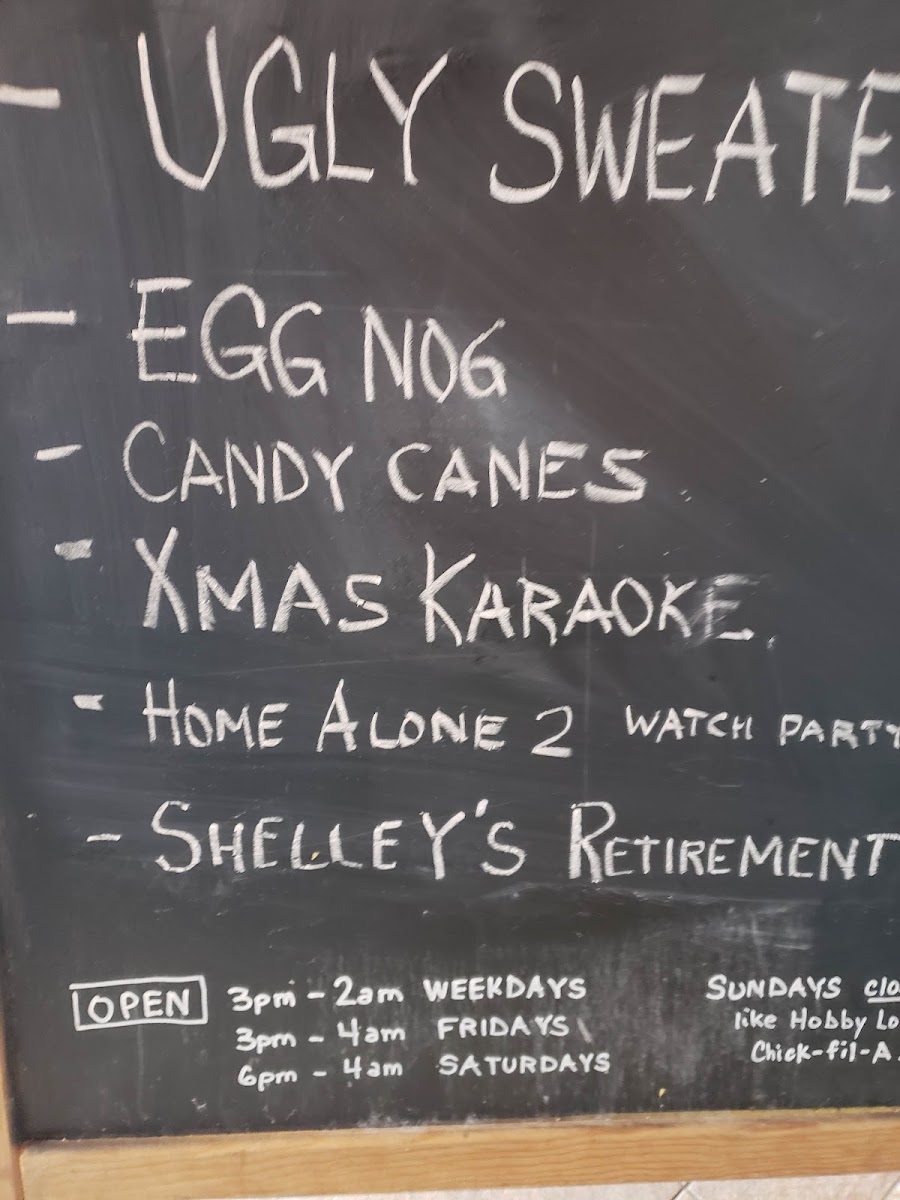 - UGLY SWEATE
- EGG NOG
- CANDY CANES
- XMAS KARAOKE
- HOME ALONE 2 WATCH PARTY
- SHELLEY'S RETIREMENT
OPEN 3pm - 2am WEEKDAYS
3pm - 4am FRIDAYS
6pm - 4am SATURDAYS
SUNDAYS clo
like Hobby Lo
Chick-fil-A.